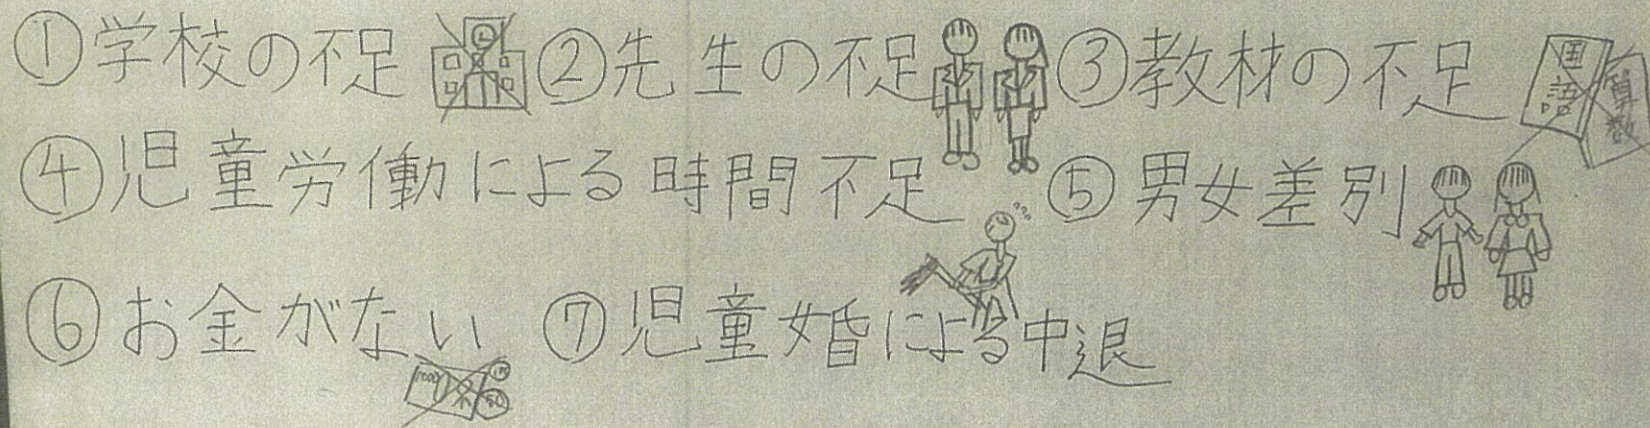 ①学校の不足 ②先生の不足 ③教材の不足 国語 算数
④児童労働による時間不足 ⑤男女差別
⑥お金がない ⑦児童婚による中退